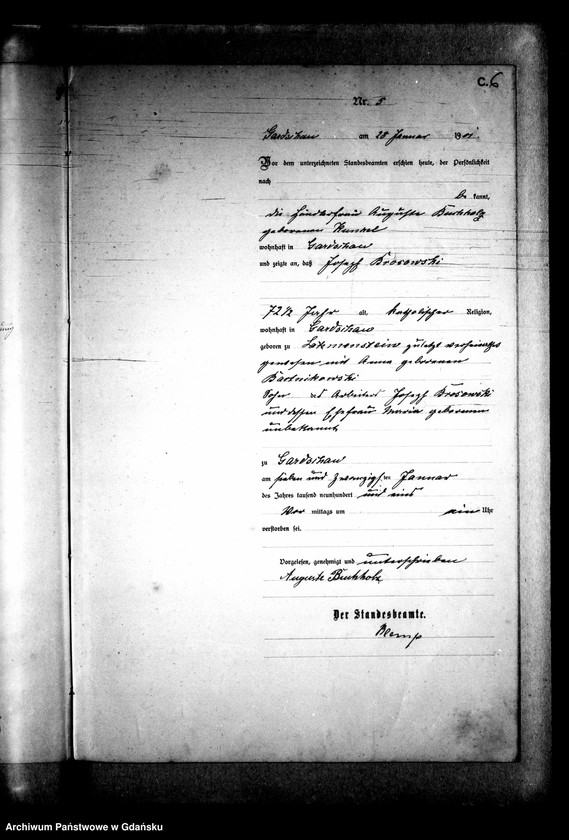 C. 6
Nr. 5
Gardschau am 28 Januar 1901.
Vor dem unterzeichneten Standesbeamten erschien heute, der Persönlichkeit
nach
be kannt,
die Händlerfrau Auguste Buchholz
geborenen Kunkel
wohnhaft in Gardschau
und zeigte an, daß Joseph Brosowski
72 1/2 Jahr alt, katholischer Religion,
wohnhaft in Gardschau
geboren zu zuletzt verheirathet
gewesen mit Anna geborenen
Bartnikowski
Sohn des Arbeiters Joseph Brosowski
und dessen Ehefrau Maria geborenen
unbekannt
zu Gardschau
am sieben und zwanzigsten Januar
des Jahres tausend neunhundert und eins
Vor mittags um ein Uhr
verstorben sei.
Vorgelesen, genehmigt und unterschrieben
Auguste Buchholz
Der Standesbeamte.
Archiwum Państwowe w Gdańsku